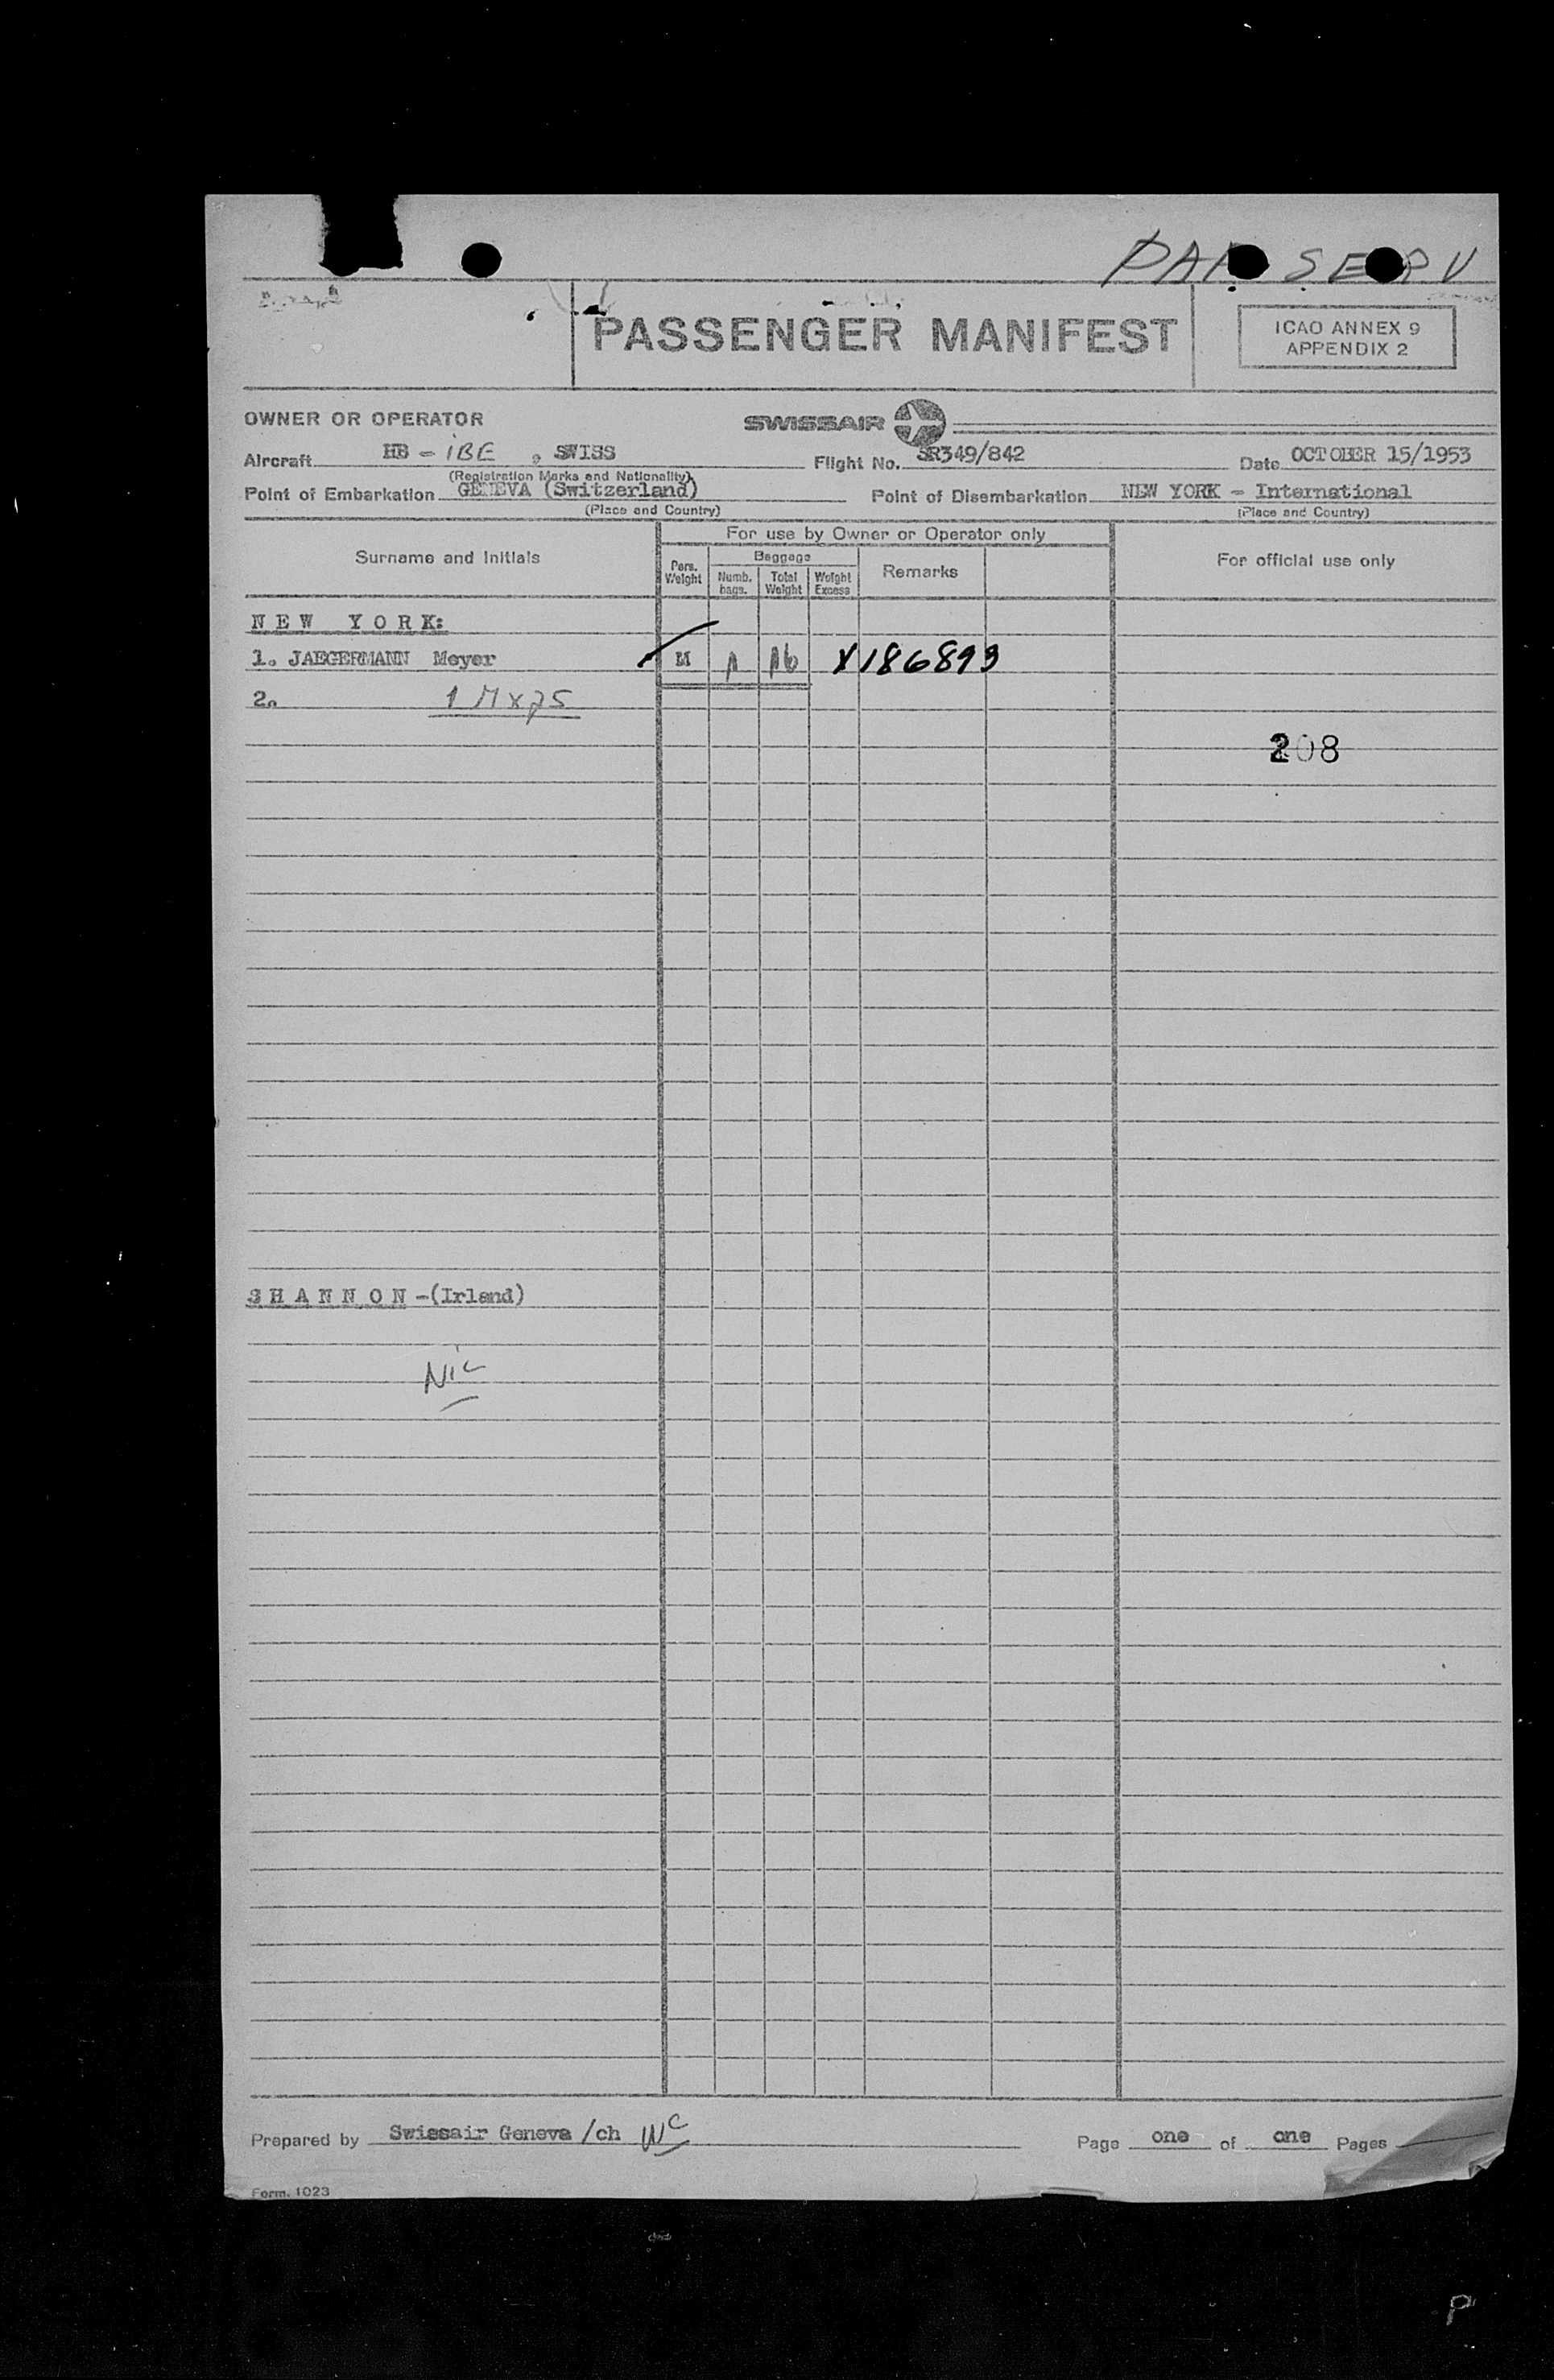 PAX SERV
PASSENGER MANIFEST
ICAO ANNEX 9
APPENDIX 2
OWNER OR OPERATOR SWISSAIR
Aircraft HB - iBE , SWISS Flight No. SR349/842 Date OCTOBER 15/1953
(Registration Marks and Nationality)
Point of Embarkation GENEVA (Switzerland) Point of Disembarkation NEW YORK - International
(Place and Country) (Place and Country)
Surname and Initials
For use by Owner or Operator only
Pers. Weight
Baggage
Numb. bags.
Total Weight
Weight Excess
Remarks
For official use only
NEW YORK:
1. JAEGERMANN Meyer M 1 16 X186893
2. 1 M x 75
208
SHANNON -(Irland)
Nil
Prepared by Swissair Geneva /ch Page one of one Pages
Form. 1023
P